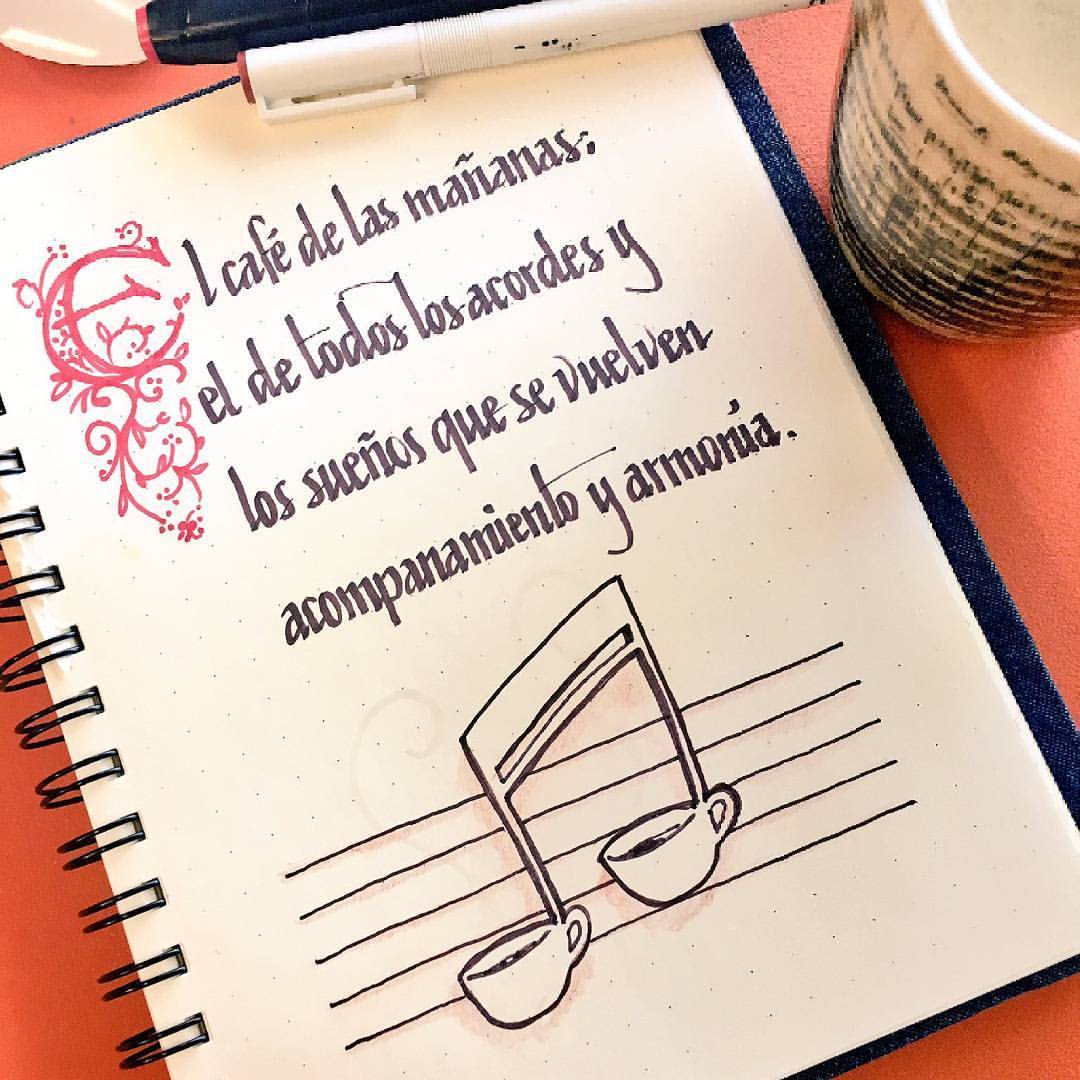 El café de las mañanas:
el de todos los acordes y
los sueños que se vuelven
acompanamiento y armonía.